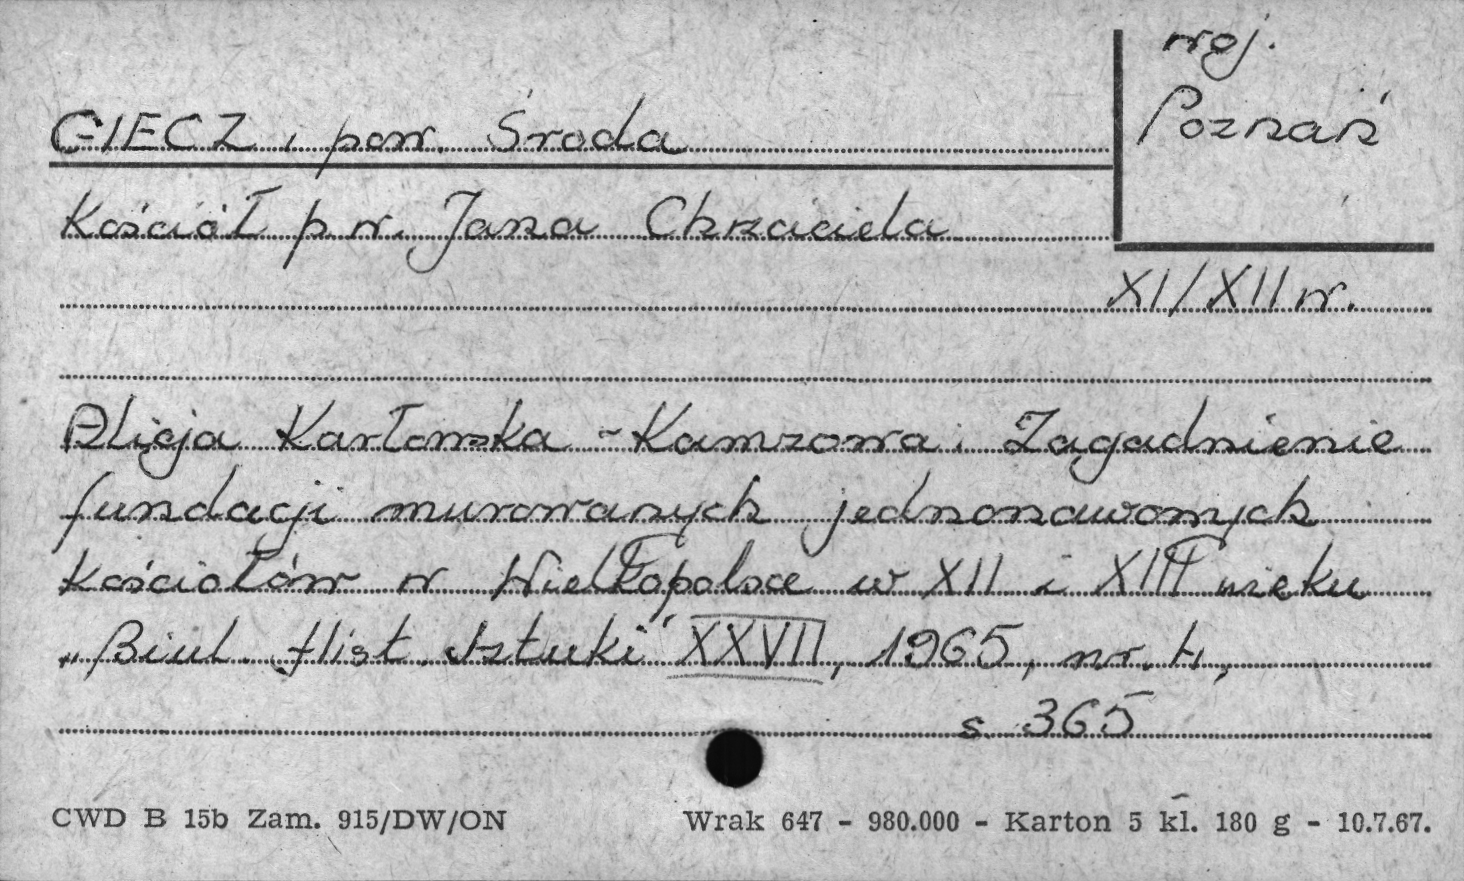 woj.
Poznań
GIECZ, pow. Środa
Kościół p.w. Jana Chrzciciela
XI/XII w.
Alicja Karłowska-Kamzowa. Zagadnienie
fundacji murowanych jednonawowych
kościołów w Wielkopolsce w XII i XIII wieku
„Biul. Hist. Sztuki" XXVII, 1965, nr. 4,
s. 365
CWD B 15b Zam. 915/DW/ON Wrak 647 - 980.000 - Karton 5 kl. 180 g - 10.7.67.